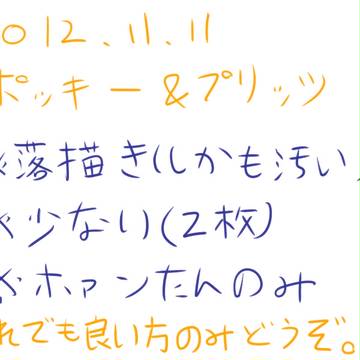 2012.11.11
ポッキー&プリッツ
※落書き(しかも汚い)
※少ない(2枚)
※ホァンたんのみ
それでも良い方のみどうぞ。